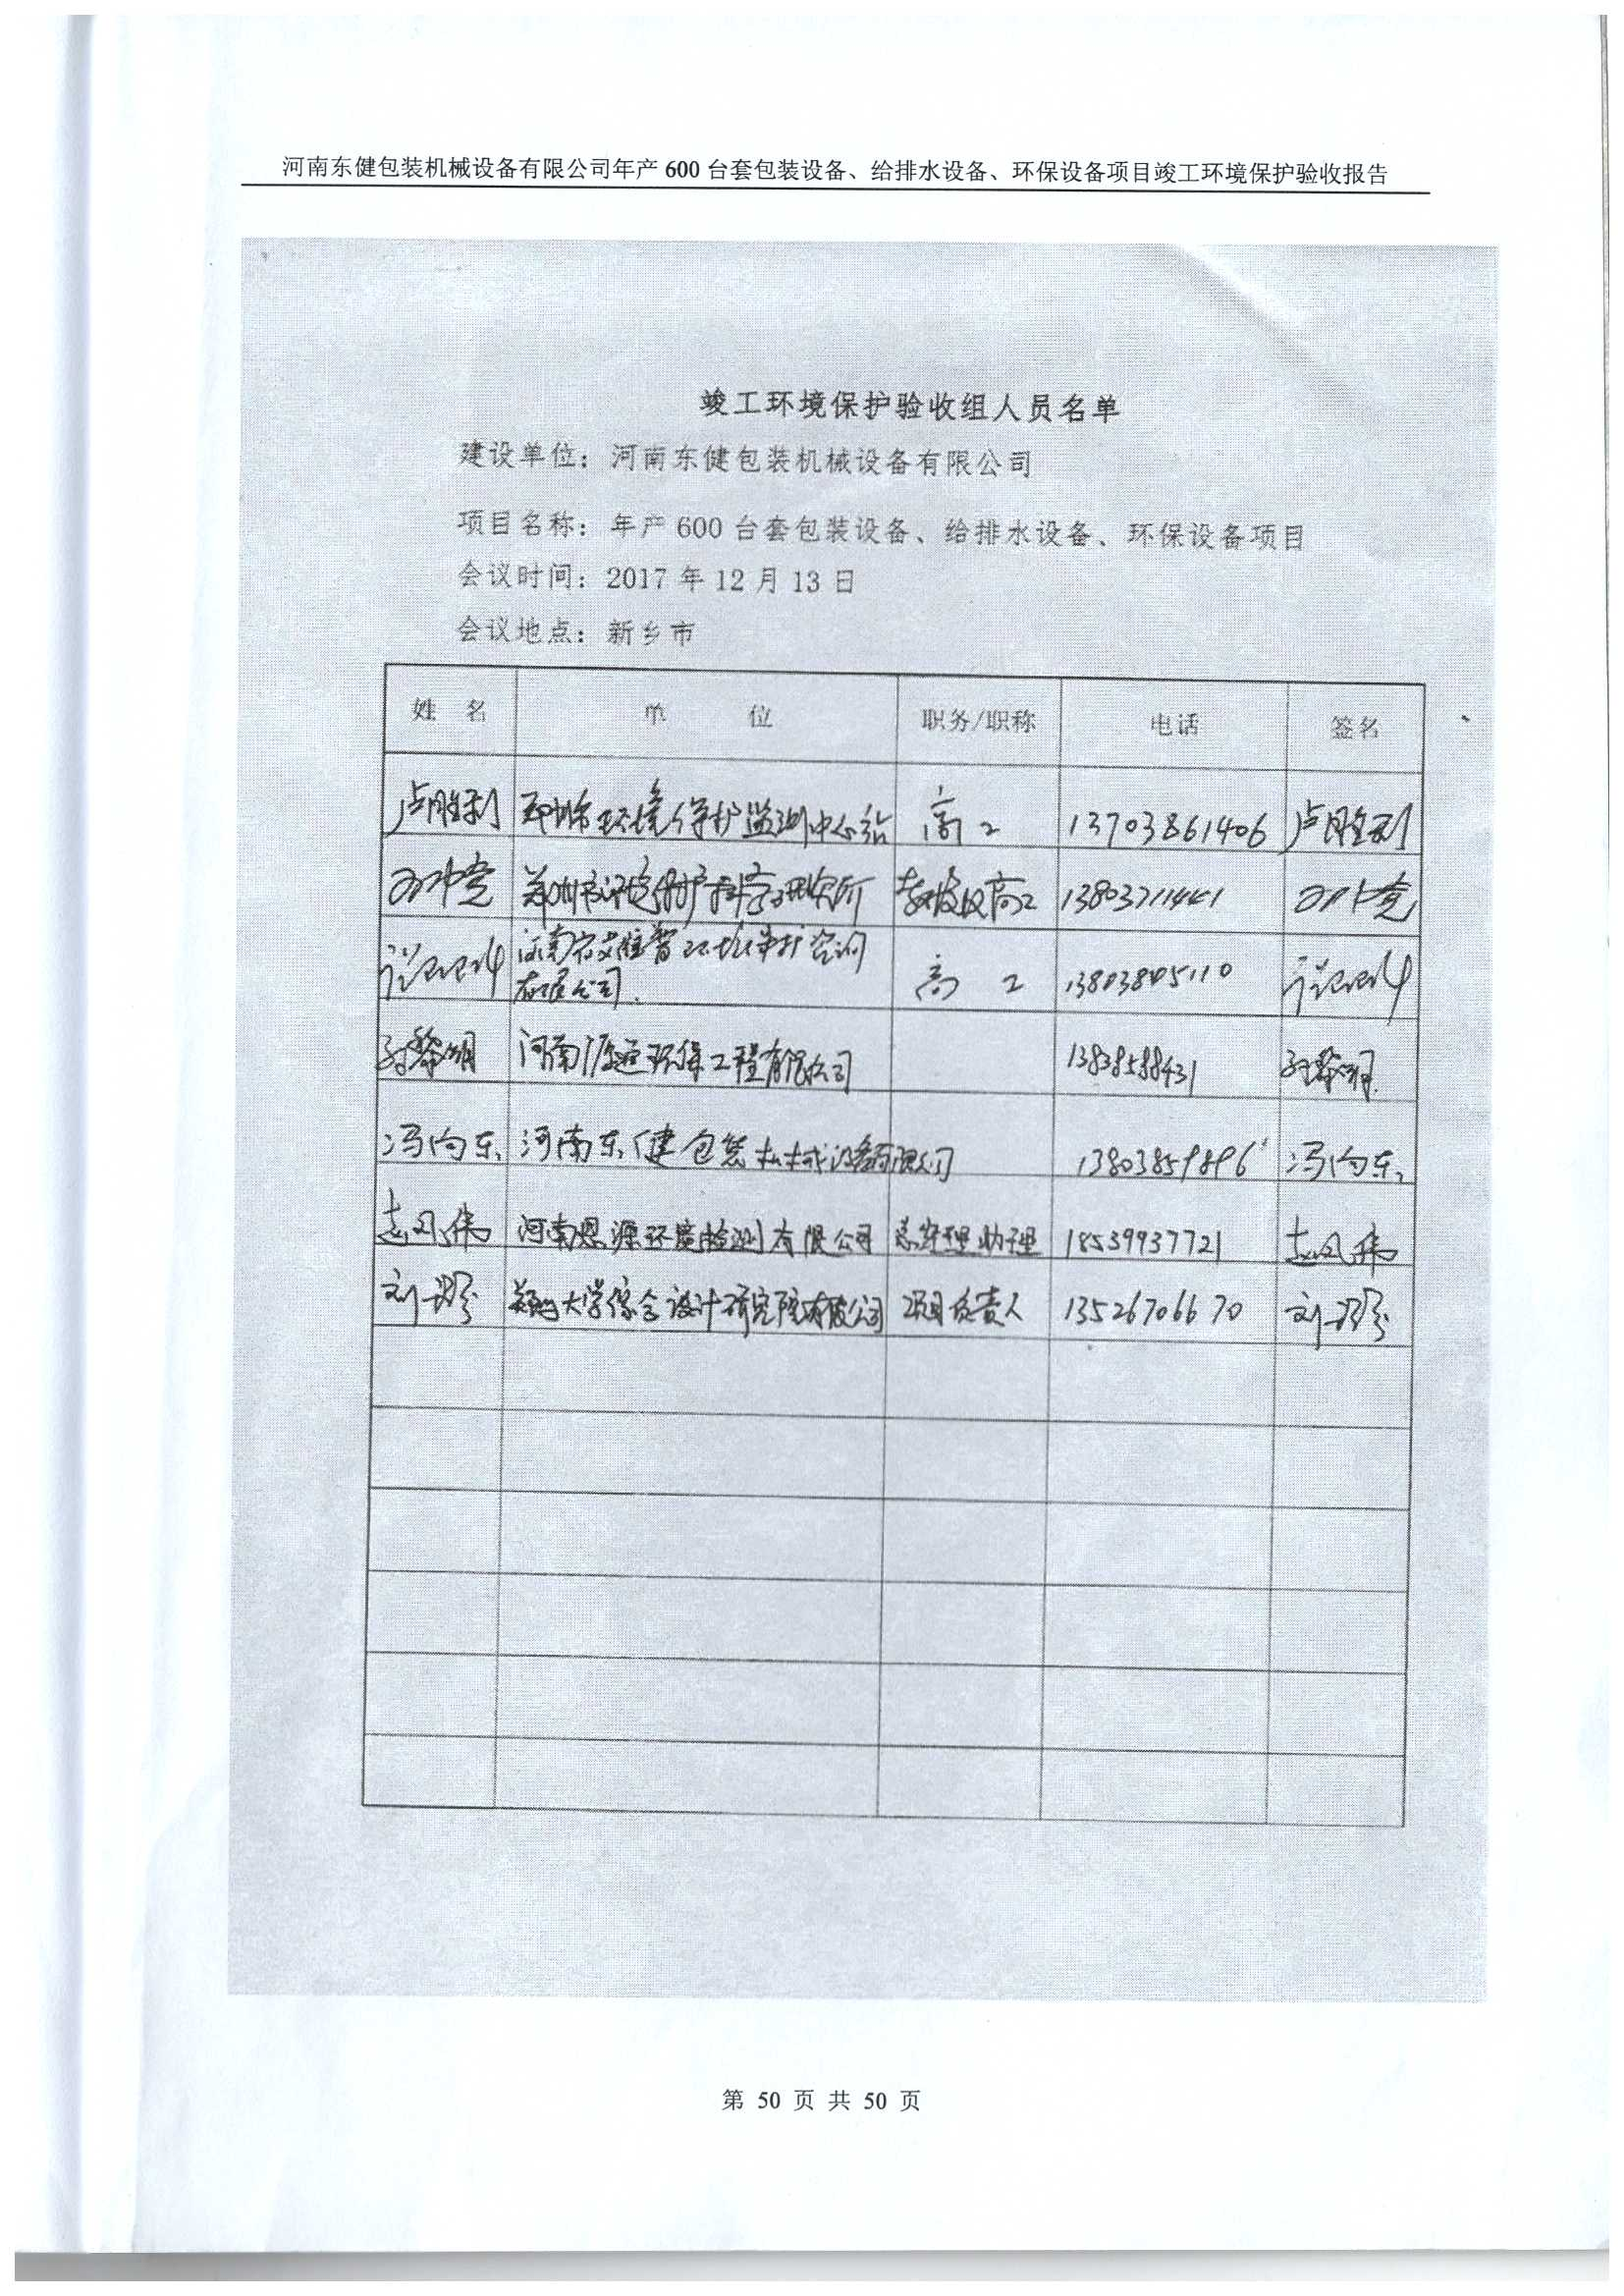 河南东健包装机械设备有限公司年产 600 台套包装设备、给排水设备、环保设备项目竣工环境保护验收报告
竣工环境保护验收组人员名单
建设单位：河南东健包装机械设备有限公司
项目名称：年产 600 台套包装设备、给排水设备、环保设备项目
会议时间：2017 年 12 月 13 日
会议地点：新乡市
姓 名 单 位 职务/职称 电话 签名
卢胜利 郑州市环境保护监测中心站 高工 13703861406 卢胜利
郑州市环境保护科学研究所 教授级高工 13803711441
环境保护咨询
有限公司 高 工
河南 环保工程有限公司 13838588431
冯向东 河南东健包装机械设备有限公司 13803859896 冯向东
赵凤伟 河南思源环境检测有限公司 总经理助理 18539937721 赵凤伟
刘 郑州大学综合设计研究院有限公司 项目负责人 13526706670 刘
第 50 页 共 50 页